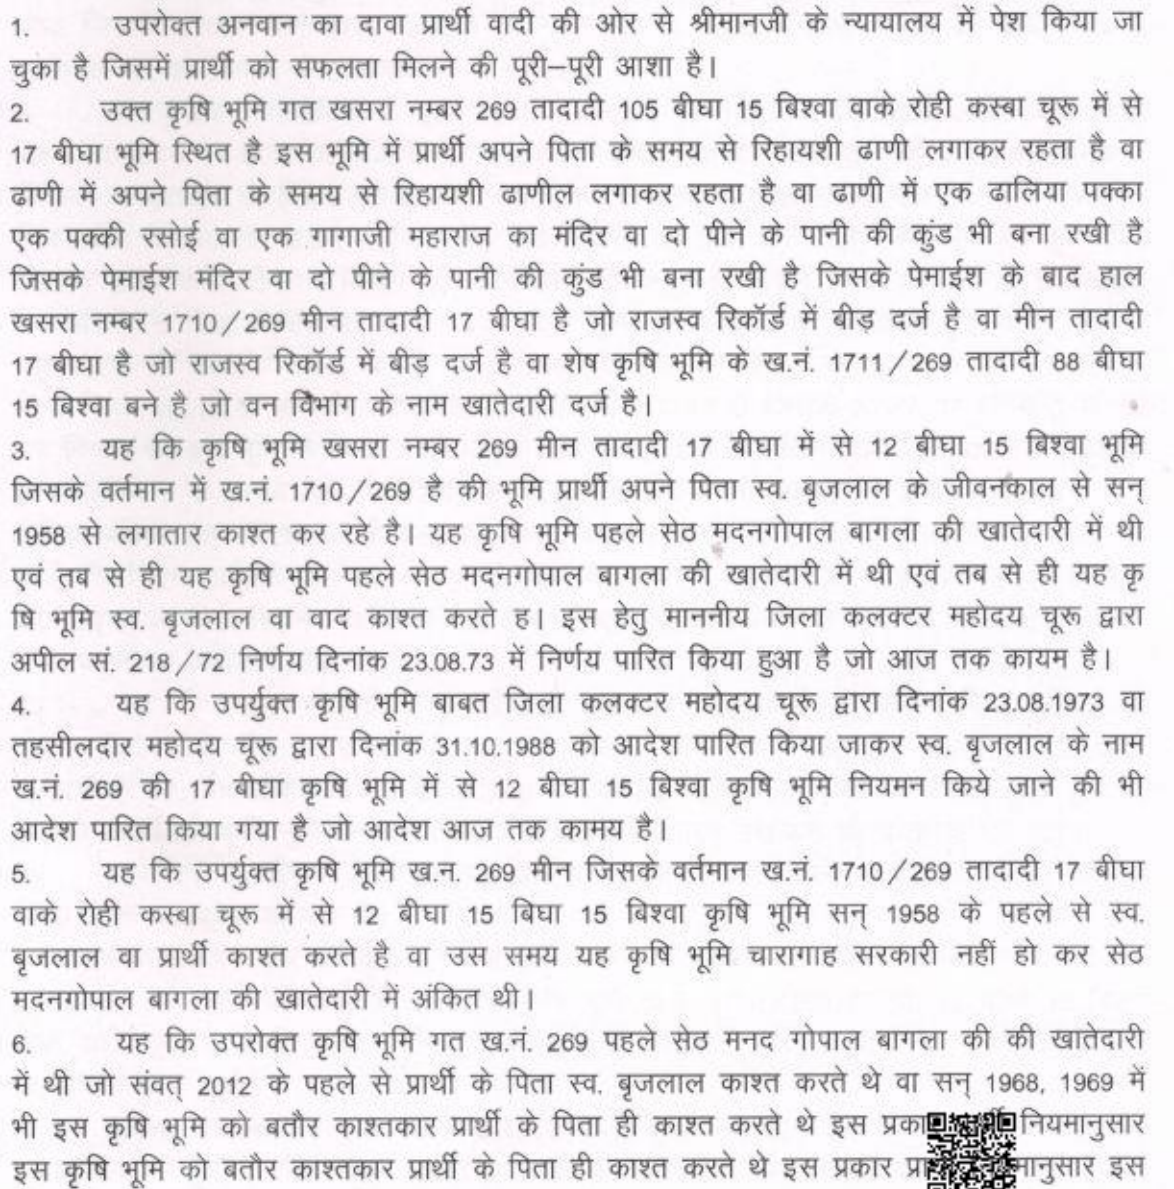 1. उपरोक्त अनवान का दावा प्रार्थी वादी की ओर से श्रीमानजी के न्यायालय में पेश किया जा
चुका है जिसमें प्रार्थी को सफलता मिलने की पूरी–पूरी आशा है।
2. उक्त कृषि भूमि गत खसरा नम्बर 269 तादादी 105 बीघा 15 बिश्वा वाके रोही कस्बा चूरू में से
17 बीघा भूमि स्थित है इस भूमि में प्रार्थी अपने पिता के समय से रिहायशी ढाणी लगाकर रहता है वा
ढाणी में अपने पिता के समय से रिहायशी ढाणील लगाकर रहता है वा ढाणी में एक ढालिया पक्का
एक पक्की रसोई वा एक गागाजी महाराज का मंदिर वा दो पीने के पानी की कुंड भी बना रखी है
जिसके पेमाईश मंदिर वा दो पीने के पानी की कुंड भी बना रखी है जिसके पेमाईश के बाद हाल
खसरा नम्बर 1710/269 मीन तादादी 17 बीघा है जो राजस्व रिकॉर्ड में बीड़ दर्ज है वा मीन तादादी
17 बीघा है जो राजस्व रिकॉर्ड में बीड़ दर्ज है वा शेष कृषि भूमि के ख.नं. 1711/269 तादादी 88 बीघा
15 बिश्वा बने है जो वन विभाग के नाम खातेदारी दर्ज है।
3. यह कि कृषि भूमि खसरा नम्बर 269 मीन तादादी 17 बीघा में से 12 बीघा 15 बिश्वा भूमि
जिसके वर्तमान में ख.नं. 1710/269 है की भूमि प्रार्थी अपने पिता स्व. बृजलाल के जीवनकाल से सन्
1958 से लगातार काश्त कर रहे है। यह कृषि भूमि पहले सेठ मदनगोपाल बागला की खातेदारी में थी
एवं तब से ही यह कृषि भूमि पहले सेठ मदनगोपाल बागला की खातेदारी में थी एवं तब से ही यह कृ
षि भूमि स्व. बृजलाल वा वाद काश्त करते ह। इस हेतु माननीय जिला कलक्टर महोदय चूरू द्वारा
अपील सं. 218/72 निर्णय दिनांक 23.08.73 में निर्णय पारित किया हुआ है जो आज तक कायम है।
4. यह कि उपर्युक्त कृषि भूमि बाबत जिला कलक्टर महोदय चूरू द्वारा दिनांक 23.08.1973 वा
तहसीलदार महोदय चूरू द्वारा दिनांक 31.10.1988 को आदेश पारित किया जाकर स्व. बृजलाल के नाम
ख.नं. 269 की 17 बीघा कृषि भूमि में से 12 बीघा 15 बिश्वा कृषि भूमि नियमन किये जाने की भी
आदेश पारित किया गया है जो आदेश आज तक कामय है।
5. यह कि उपर्युक्त कृषि भूमि ख.न. 269 मीन जिसके वर्तमान ख.नं. 1710/269 तादादी 17 बीघा
वाके रोही कस्बा चूरू में से 12 बीघा 15 बिघा 15 बिश्वा कृषि भूमि सन् 1958 के पहले से स्व.
बृजलाल वा प्रार्थी काश्त करते है वा उस समय यह कृषि भूमि चारागाह सरकारी नहीं हो कर सेठ
मदनगोपाल बागला की खातेदारी में अंकित थी।
6. यह कि उपरोक्त कृषि भूमि गत ख.नं. 269 पहले सेठ मनद गोपाल बागला की की खातेदारी
में थी जो संवत् 2012 के पहले से प्रार्थी के पिता स्व. बृजलाल काश्त करते थे वा सन् 1968, 1969 में
भी इस कृषि भूमि को बतौर काश्तकार प्रार्थी के पिता ही काश्त करते थे इस नियमानुसार
इस कृषि भूमि को बतौर काश्तकार प्रार्थी के पिता ही काश्त करते थे इस प्रकार इस